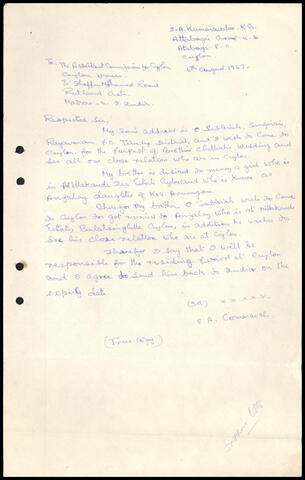 S. A. Kumarawloo, K. G.
Attabagie Group
Atabagie P. O.
Ceylon.
6th August 1967.
To, The Assistant Commission for Ceylon
Ceylon House,
Mohamed Road
Rutland Gate,
Madras - 6. S. India.
Respected Sir,
My Son's address is C Subbiah,
District, and I wish to come to
Ceylon. for the purpose of Brother Wedding and
see all our close relation who are in Ceylon.
My brother is desired to marry a girl who is
in Tea Estate Ceylon and who is know as
Anjaley daughter of K.V. Arumugan
my brother C Subbiah wish to come
to Ceylon to get married to Anjaley who is at
Estate, Bulatkohupitiya Ceylon, in addition he wishes to
see his close relation who are at Ceylon.
I say that I will be
responsible for the residing period at Ceylon
and I agree to send him back to India on the
expiry date.
(Sd) x x x x x.
S. A.
(True Copy)